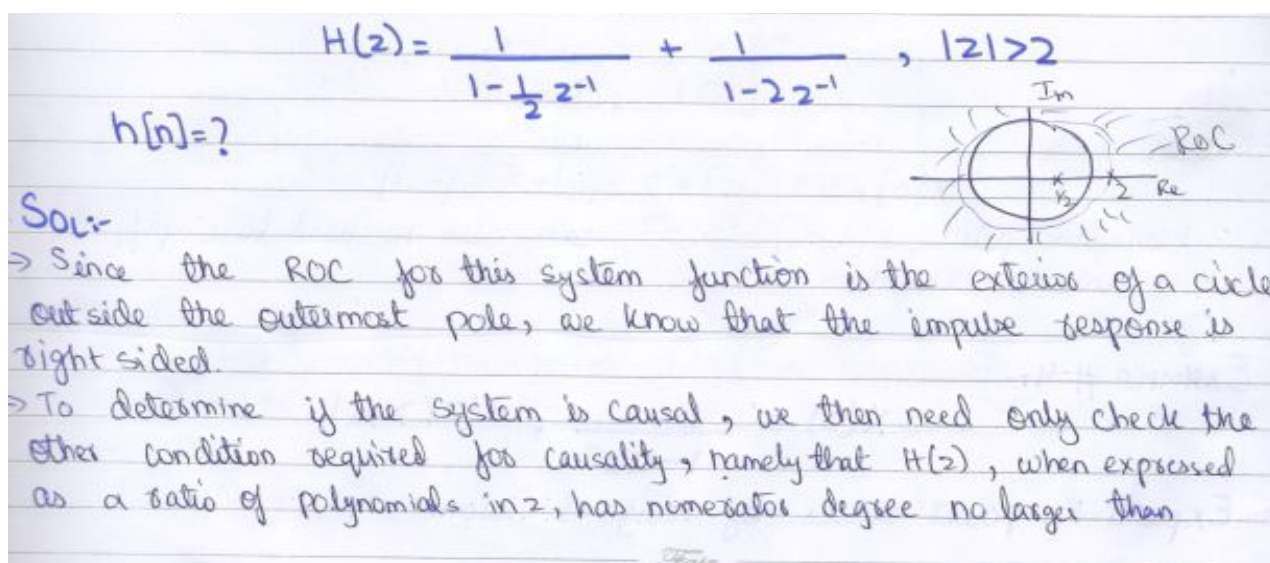 H(z) = 1 / (1 - 1/2 z⁻¹) + 1 / (1 - 2z⁻¹) , |z|>2
Im
h[n]=?
ROC
1/2 2 Re
SOL:-
→ Since the ROC for this system function is the exterior of a circle
outside the outermost pole, we know that the impulse response is
right sided.
→ To determine if the system is causal, we then need only check the
other condition required for causality, namely that H(z), when expressed
as a ratio of polynomials in z, has numerator degree no larger than